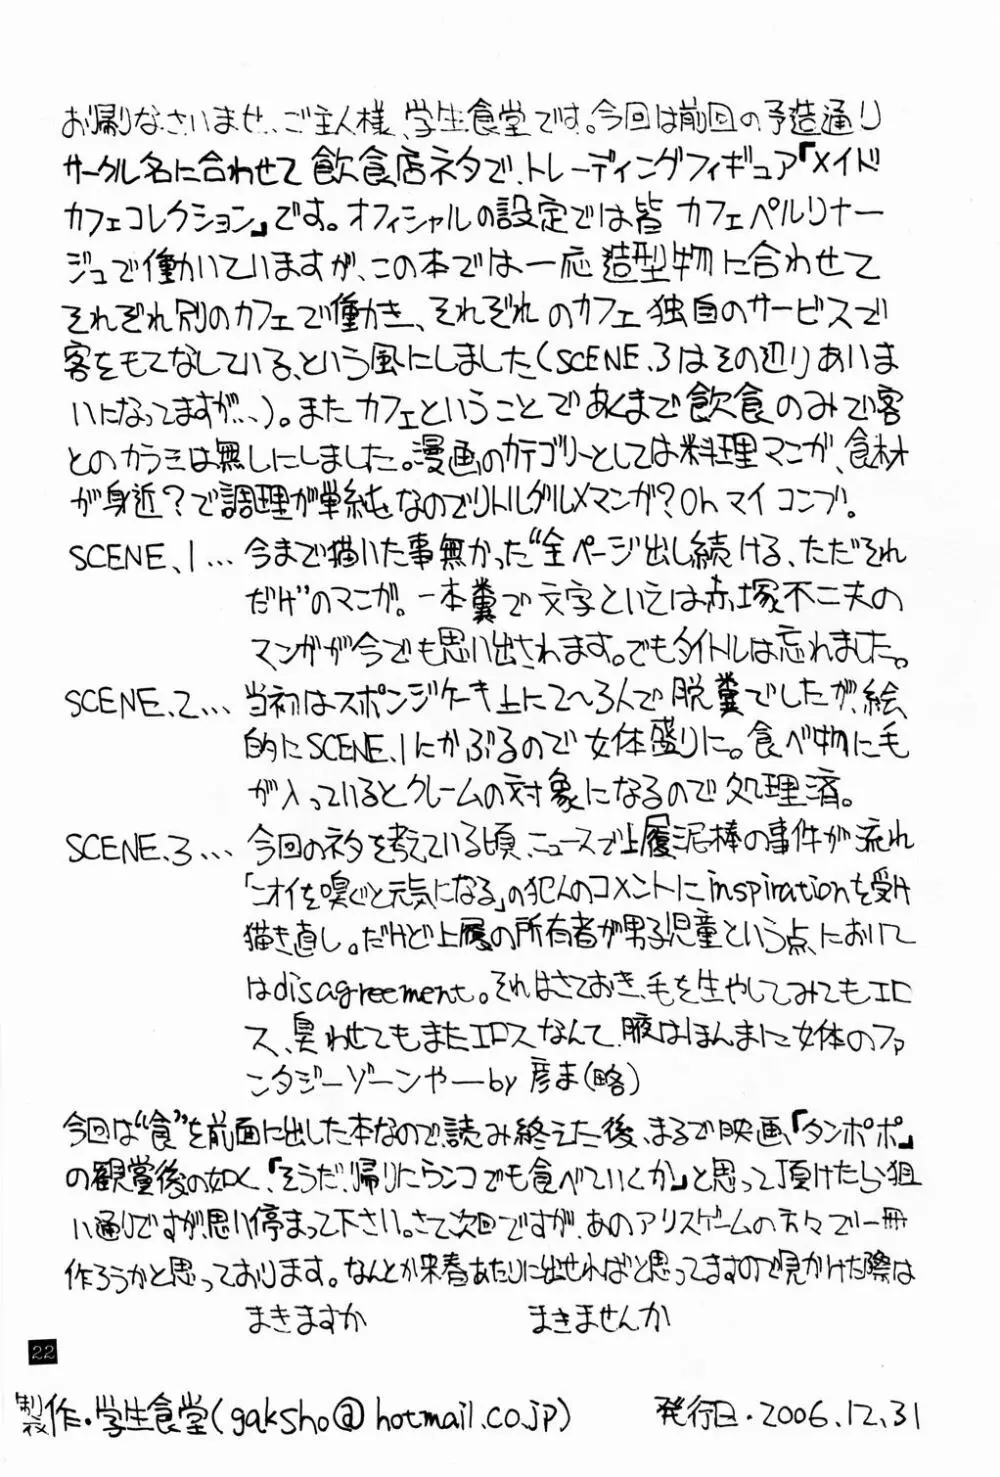 お帰りなさいませ、ご主人様、学生食堂です。今回は前回の予造通り
サークル名に合わせて飲食店ネタで、トレーディングフィギュア「メイド
カフェコレクション」です。オフィシャルの設定では皆カフェペルリナー
ジュで働いていますが、この本では一応造型物に合わせて
それぞれ別のカフェで働き、それぞれのカフェ独自のサービスで
客をもてなしている、という風にしました(SCENE.3はその辺りあいま
いになってますが…)。またカフェということであくまで飲食のみで客
とのカラミは無しにしました。漫画のカテゴリーとしては料理マンガ、食材
が身近?で調理が単純なのでリトルグルメマンガ?Ohマイコンブ。
SCENE.1… 今まで描いた事無かった“全ページ出し続ける、ただそれ
だけ”のマンガ。一本糞で文字といえば赤塚不二夫の
マンガが今でも思い出されます。でもタイトルは忘れました。
SCENE.2… 当初はスポンジケーキ上に2〜3人で脱糞でしたが、絵
的にSCENE.1にかぶるので女体盛りに。食べ物に毛
が入っているとクレームの対象になるので処理済。
SCENE.3… 今回のネタを考えている頃、ニュースで上履泥棒の事件が流れ
「ニオイを嗅ぐと元気になる」の犯人のコメントにinspirationを受け
描き直し。だけど上履の所有者が男子児童という点においては
はdisagreement。それはさておき、毛を生やしてみてもエロ
ス、臭わせてもまたエロスなんて、腋はほんまに女体のファ
ンタジーゾーンやーby彦ま(略)
今回は“食”を前面に出した本なので、読み終えた後、まるで映画「タンポポ」
の観賞後の如く、「そうだ、帰りにウンコでも食べていくか」と思って頂けたら狙
い通りですが、思い停まって下さい。さて次回ですが、あのアリスゲームの方々で一冊
作ろうかと思っております。なんとか来春あたりに出せればと思ってますので見かけた際は
まきますか まきませんか
22
製作・学生食堂(gaksho@hotmail.co.jp) 発行日・2006.12.31